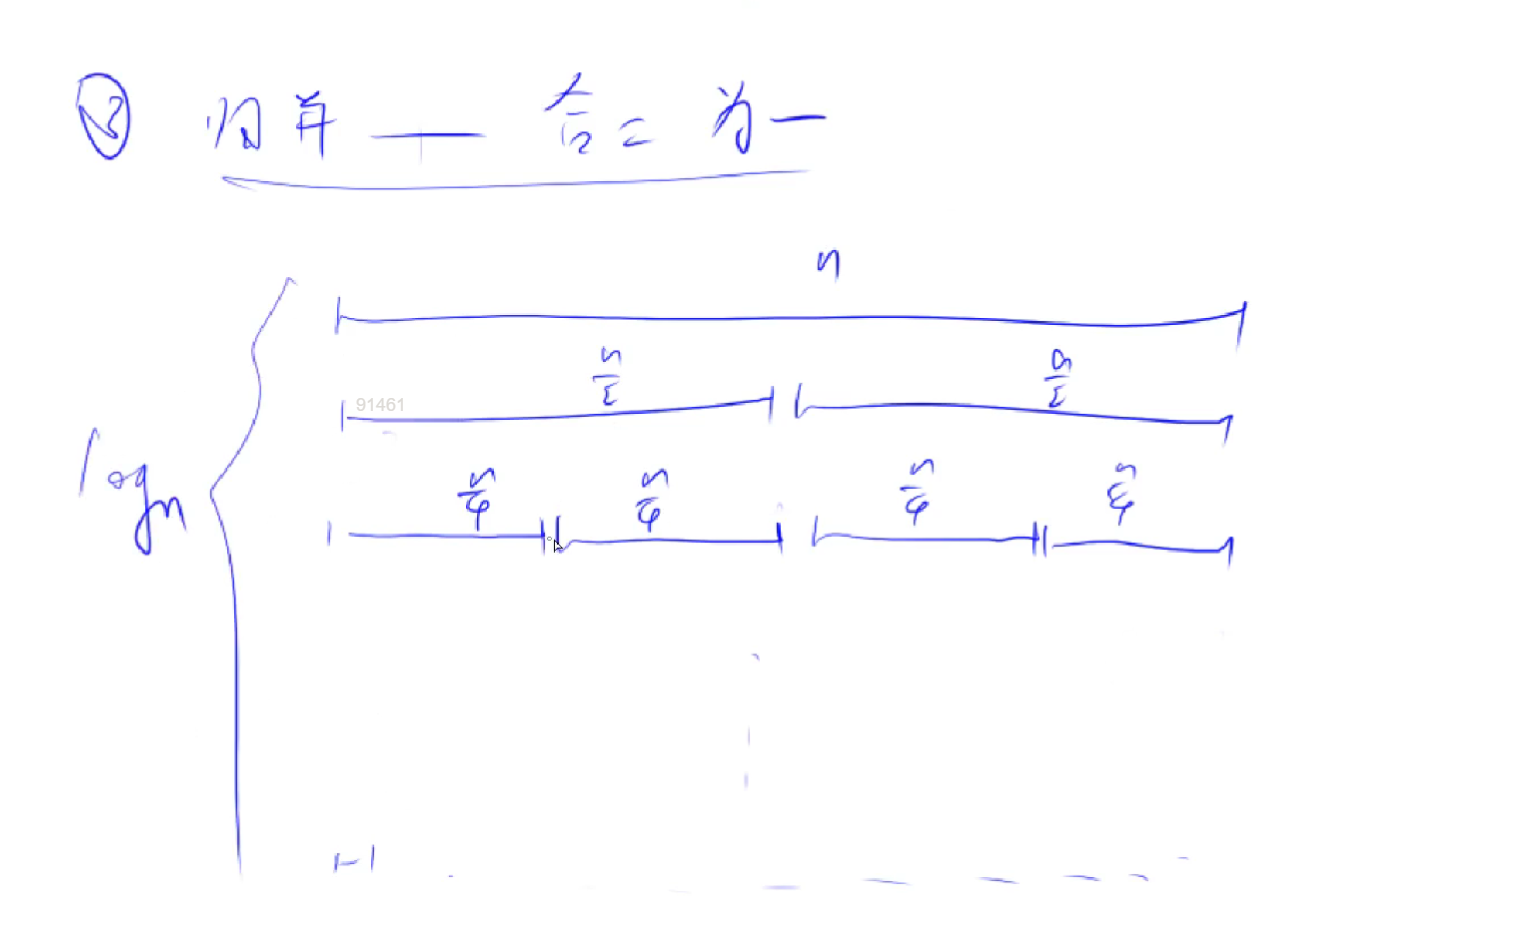 ③ 归并 — 合二为一
n
n/2 n/2
91461
n/4 n/4 n/4 n/4
logn